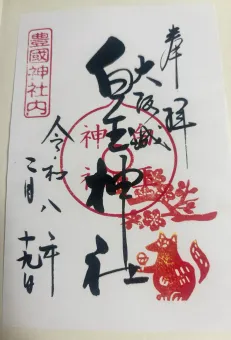 奉拝
大阪城
白玉神社
令和八年
二月
十九日
豊國神社内
神社